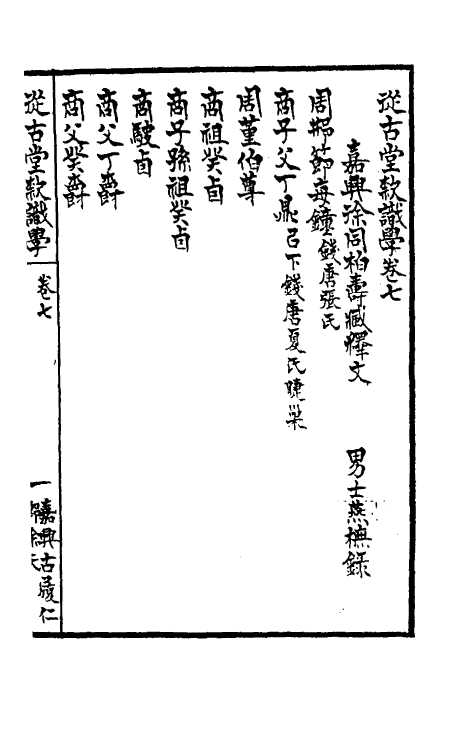 從古堂款識學卷七
嘉興徐同柏壽臧釋文　男士燕橅錄
周䣄䣆每鐘錢唐張氏
商子父丁鼎已下錢唐夏氏
周堇伯尊
商祖癸卣
商子孫祖癸卣
商駿卣
商父丁爵
商父癸爵
從古堂款識學　卷七　一　嘉興古履仁